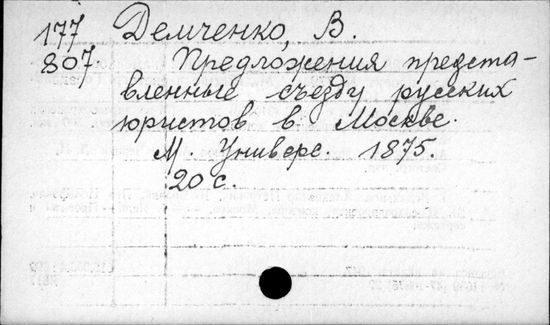 177 Демченко, В.
807. Предложения предста-
вленные съезду русских
юристов в Москве.
М. Универс. 1875.
20 с.